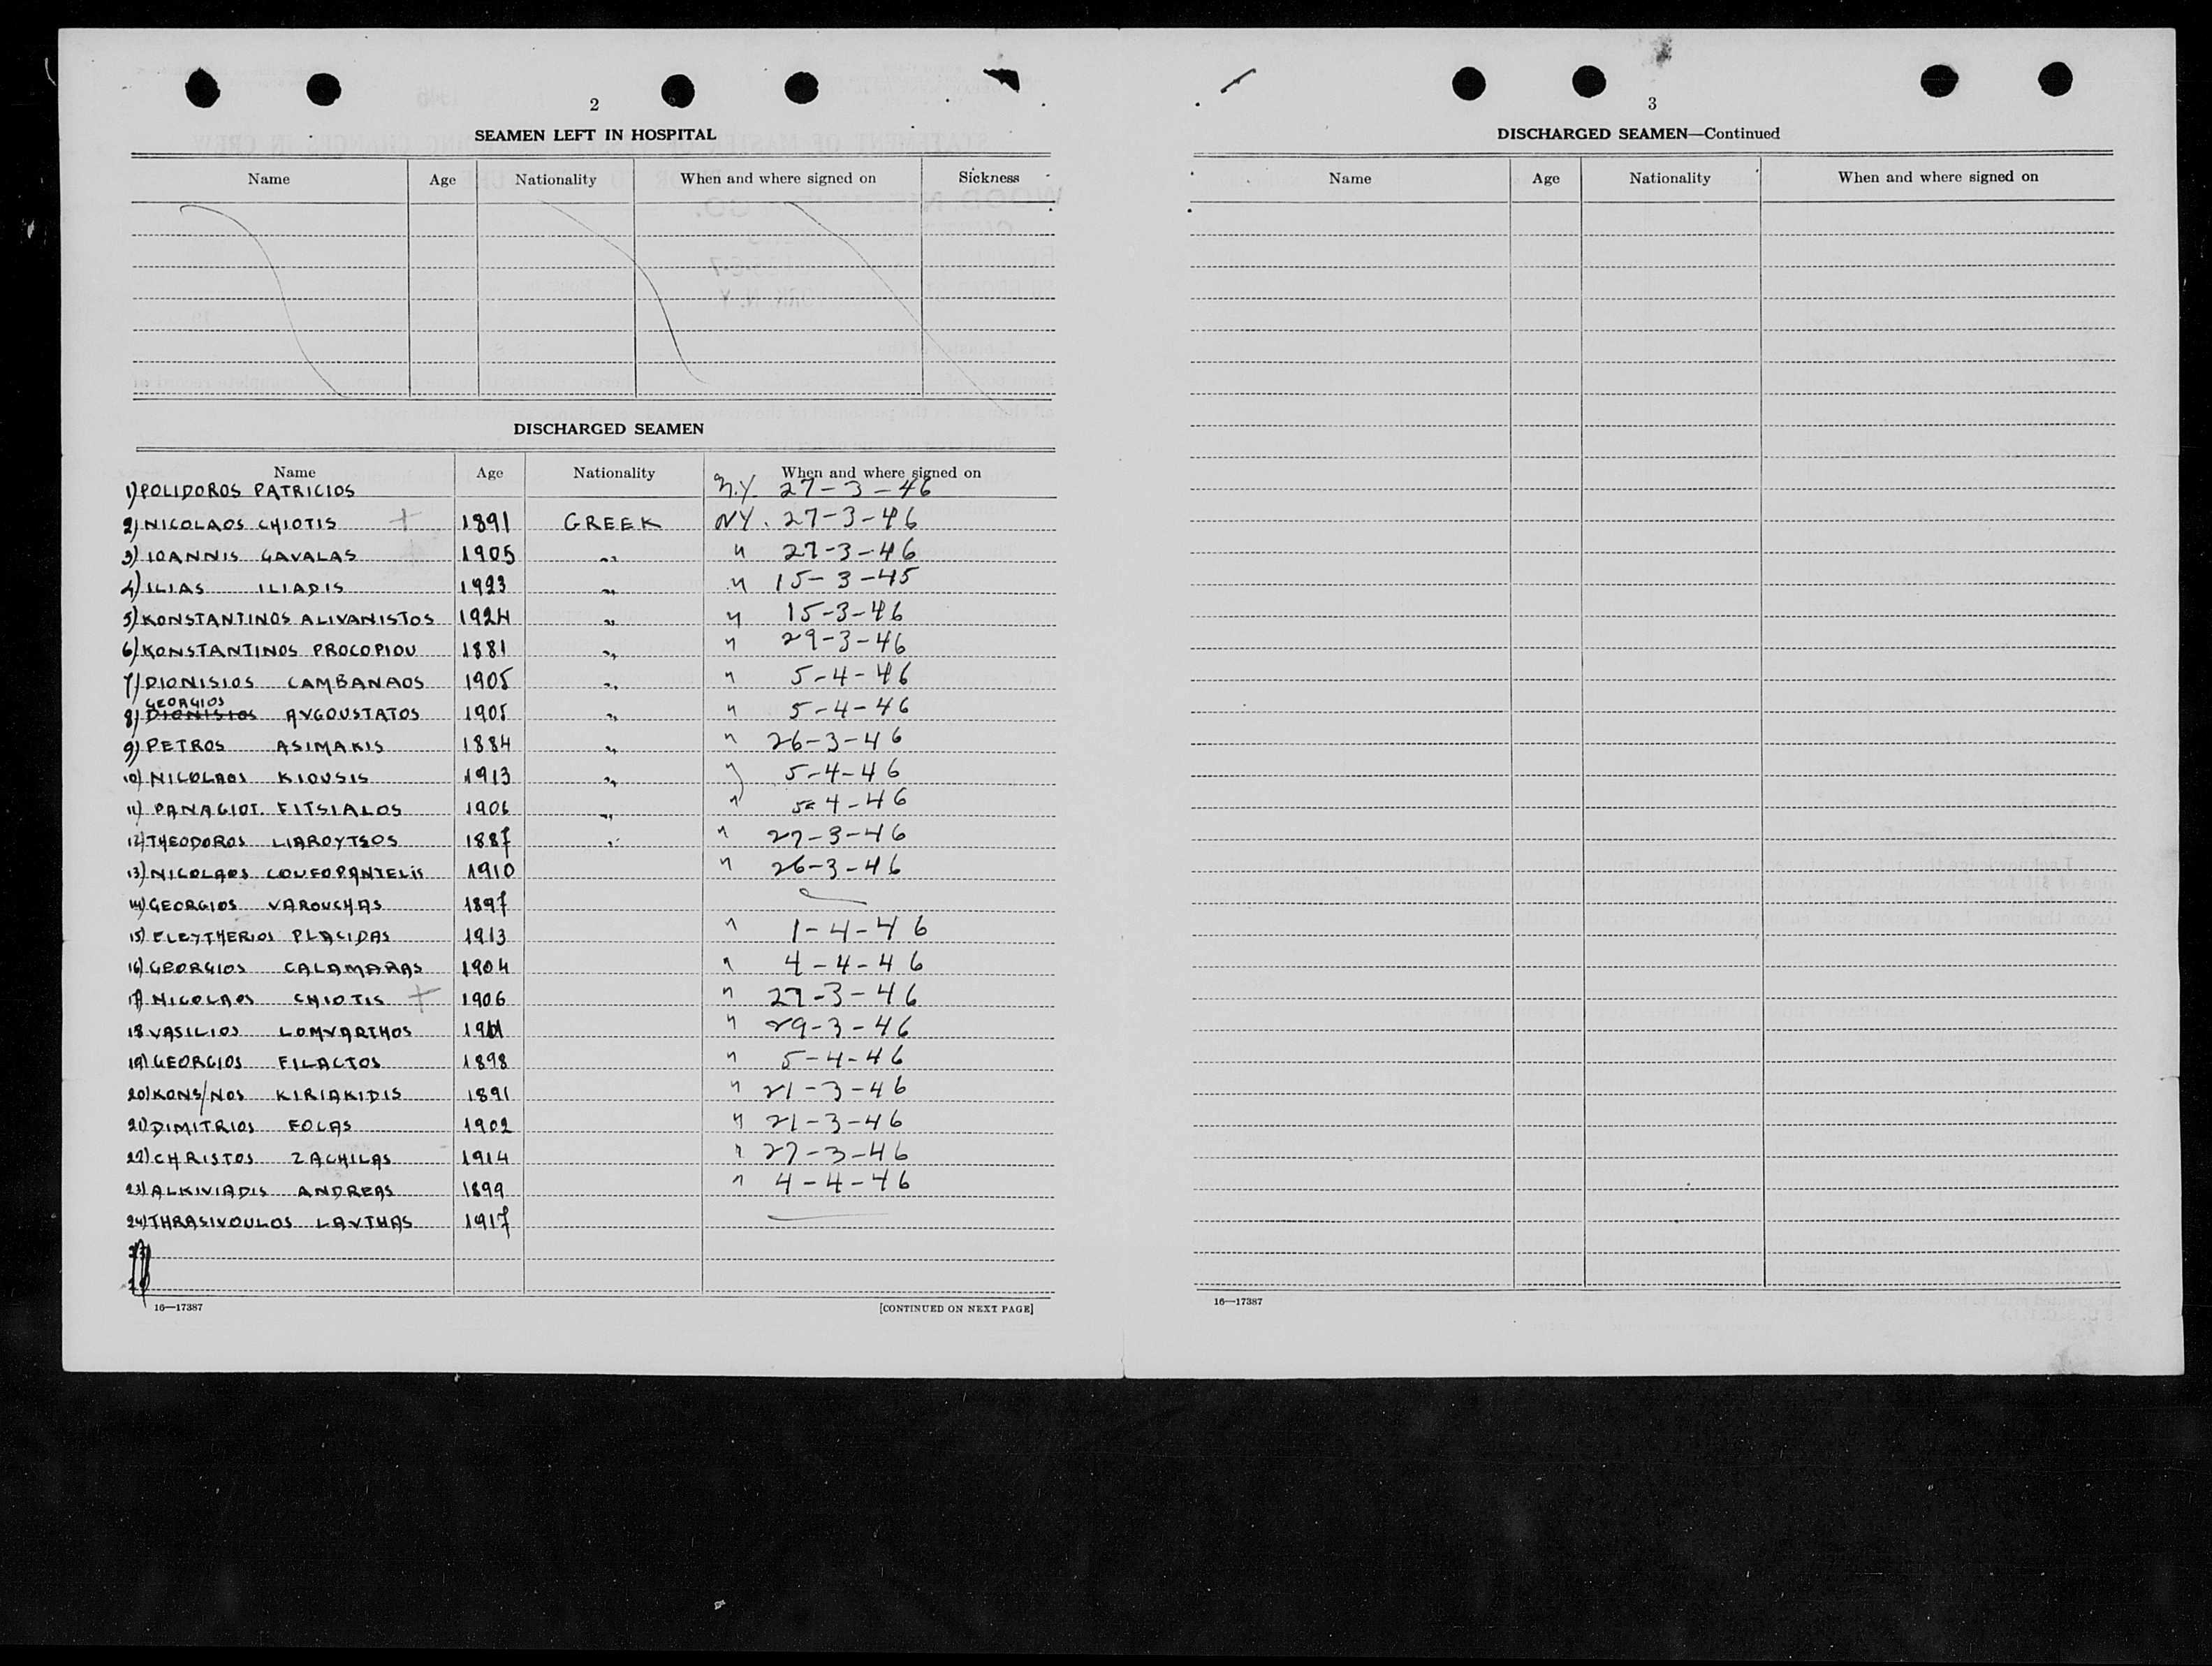 2
SEAMEN LEFT IN HOSPITAL
Name Age Nationality When and where signed on Sickness
DISCHARGED SEAMEN
Name Age Nationality When and where signed on
1) POLIDOROS PATRICIOS N.Y. 27-3-46
2) NICOLAOS CHIOTIS + 1891 GREEK NY. 27-3-46
3) IOANNIS GAVALAS 1905 " " 27-3-46
4) ILIAS ILIADIS 1923 " " 15-3-45
5) KONSTANTINOS ALIVANISTOS 1924 " " 15-3-46
6) KONSTANTINOS PROCOPIOU 1881 " " 29-3-46
7) DIONISIOS CAMBANAOS 1905 " " 5-4-46
GEORGIOS
8) DIONISIOS AVGOUSTATOS 1905 " " 5-4-46
9) PETROS ASIMAKIS 1884 " " 26-3-46
10) NICOLAOS KIOUSIS 1913 " " 5-4-46
11) PANAGIOT. FITSIALOS 1906 " " 5-4-46
12) THEODOROS LIAROYTSOS 1887 " " 27-3-46
13) NICOLAOS COUFOPANTELIS 1910 " 26-3-46
14) GEORGIOS VAROUCHAS 1897
15) ELEYTHERIOS PLACIDAS 1913 " 1-4-46
16) GEORGIOS CALAMARAS 1904 " 4-4-46
17) NICOLAOS CHIOTIS + 1906 " 27-3-46
18 VASILIOS LOMVARTHOS " 29-3-46
19) GEORGIOS FILACTOS 1898 " 5-4-46
20) KONS/NOS KIRIAKIDIS 1891 " 21-3-46
21) DIMITRIOS FOCAS 1902 " 21-3-46
22) CHRISTOS ZACHILAS 1914 " 27-3-46
23) ALKIVIADIS ANDREAS 1899 " 4-4-46
24) THRASIVOULOS LAVTHAS 1917
16—17387 [CONTINUED ON NEXT PAGE]
3
DISCHARGED SEAMEN—Continued
Name Age Nationality When and where signed on
16—17387